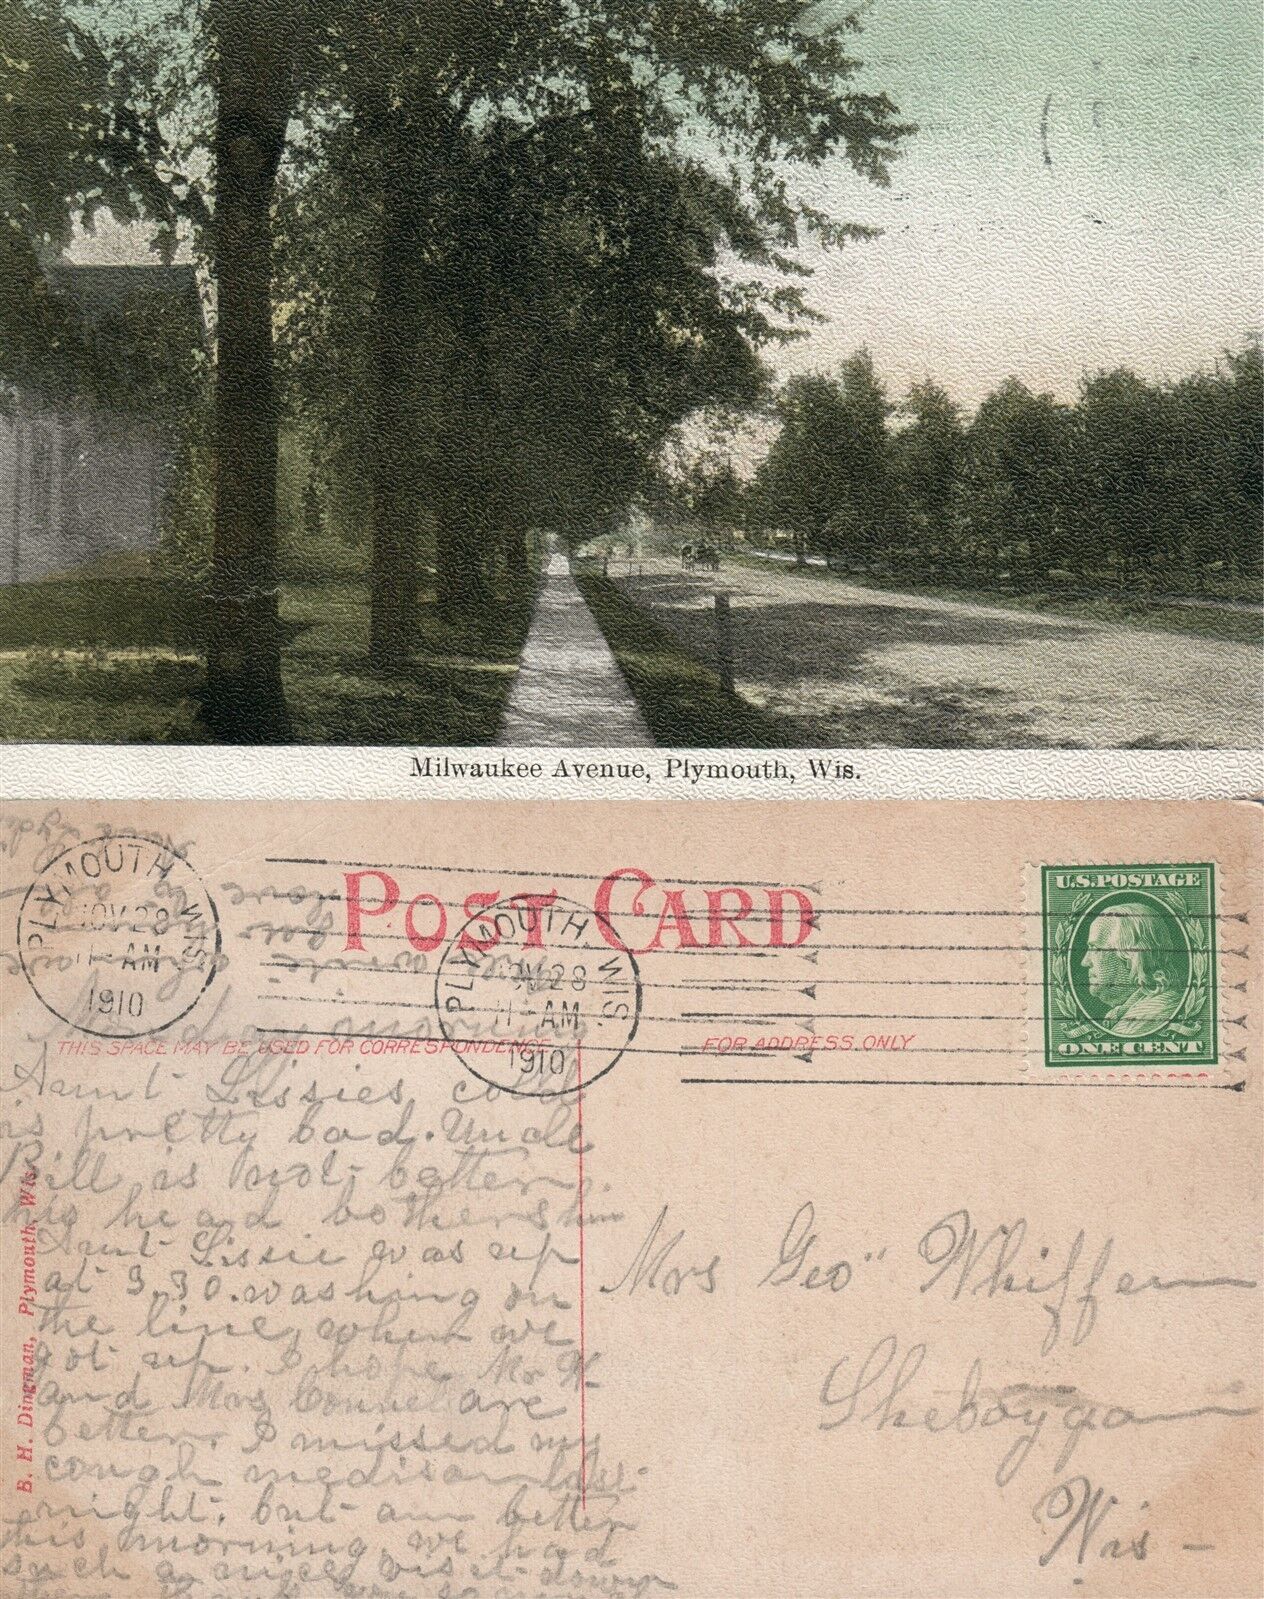 Milwaukee Avenue, Plymouth, Wis.
POST CARD
PLYMOUTH, WIS.
NOV 28
11 - AM
1910
PLYMOUTH, WIS.
NOV 28
11 - AM
1910
U.S. POSTAGE
ONE CENT
THIS SPACE MAY BE USED FOR CORRESPONDENCE
FOR ADDRESS ONLY
B. H. Dingman, Plymouth, Wis.
write
have
Monday morning
Aunt Lissies cold
is pretty bad. Uncle
Bill is not better
his head bothers him
Aunt Lissie was up
at 3.30. washing on
the line, when we
got up. I hope Mr K
and Mrs Connel are
better. I missed my
cough medisan last
night. but am better
this morning. we had
such a nice visit down
Mrs Geo" Whiffen
Sheboygan
Wis -